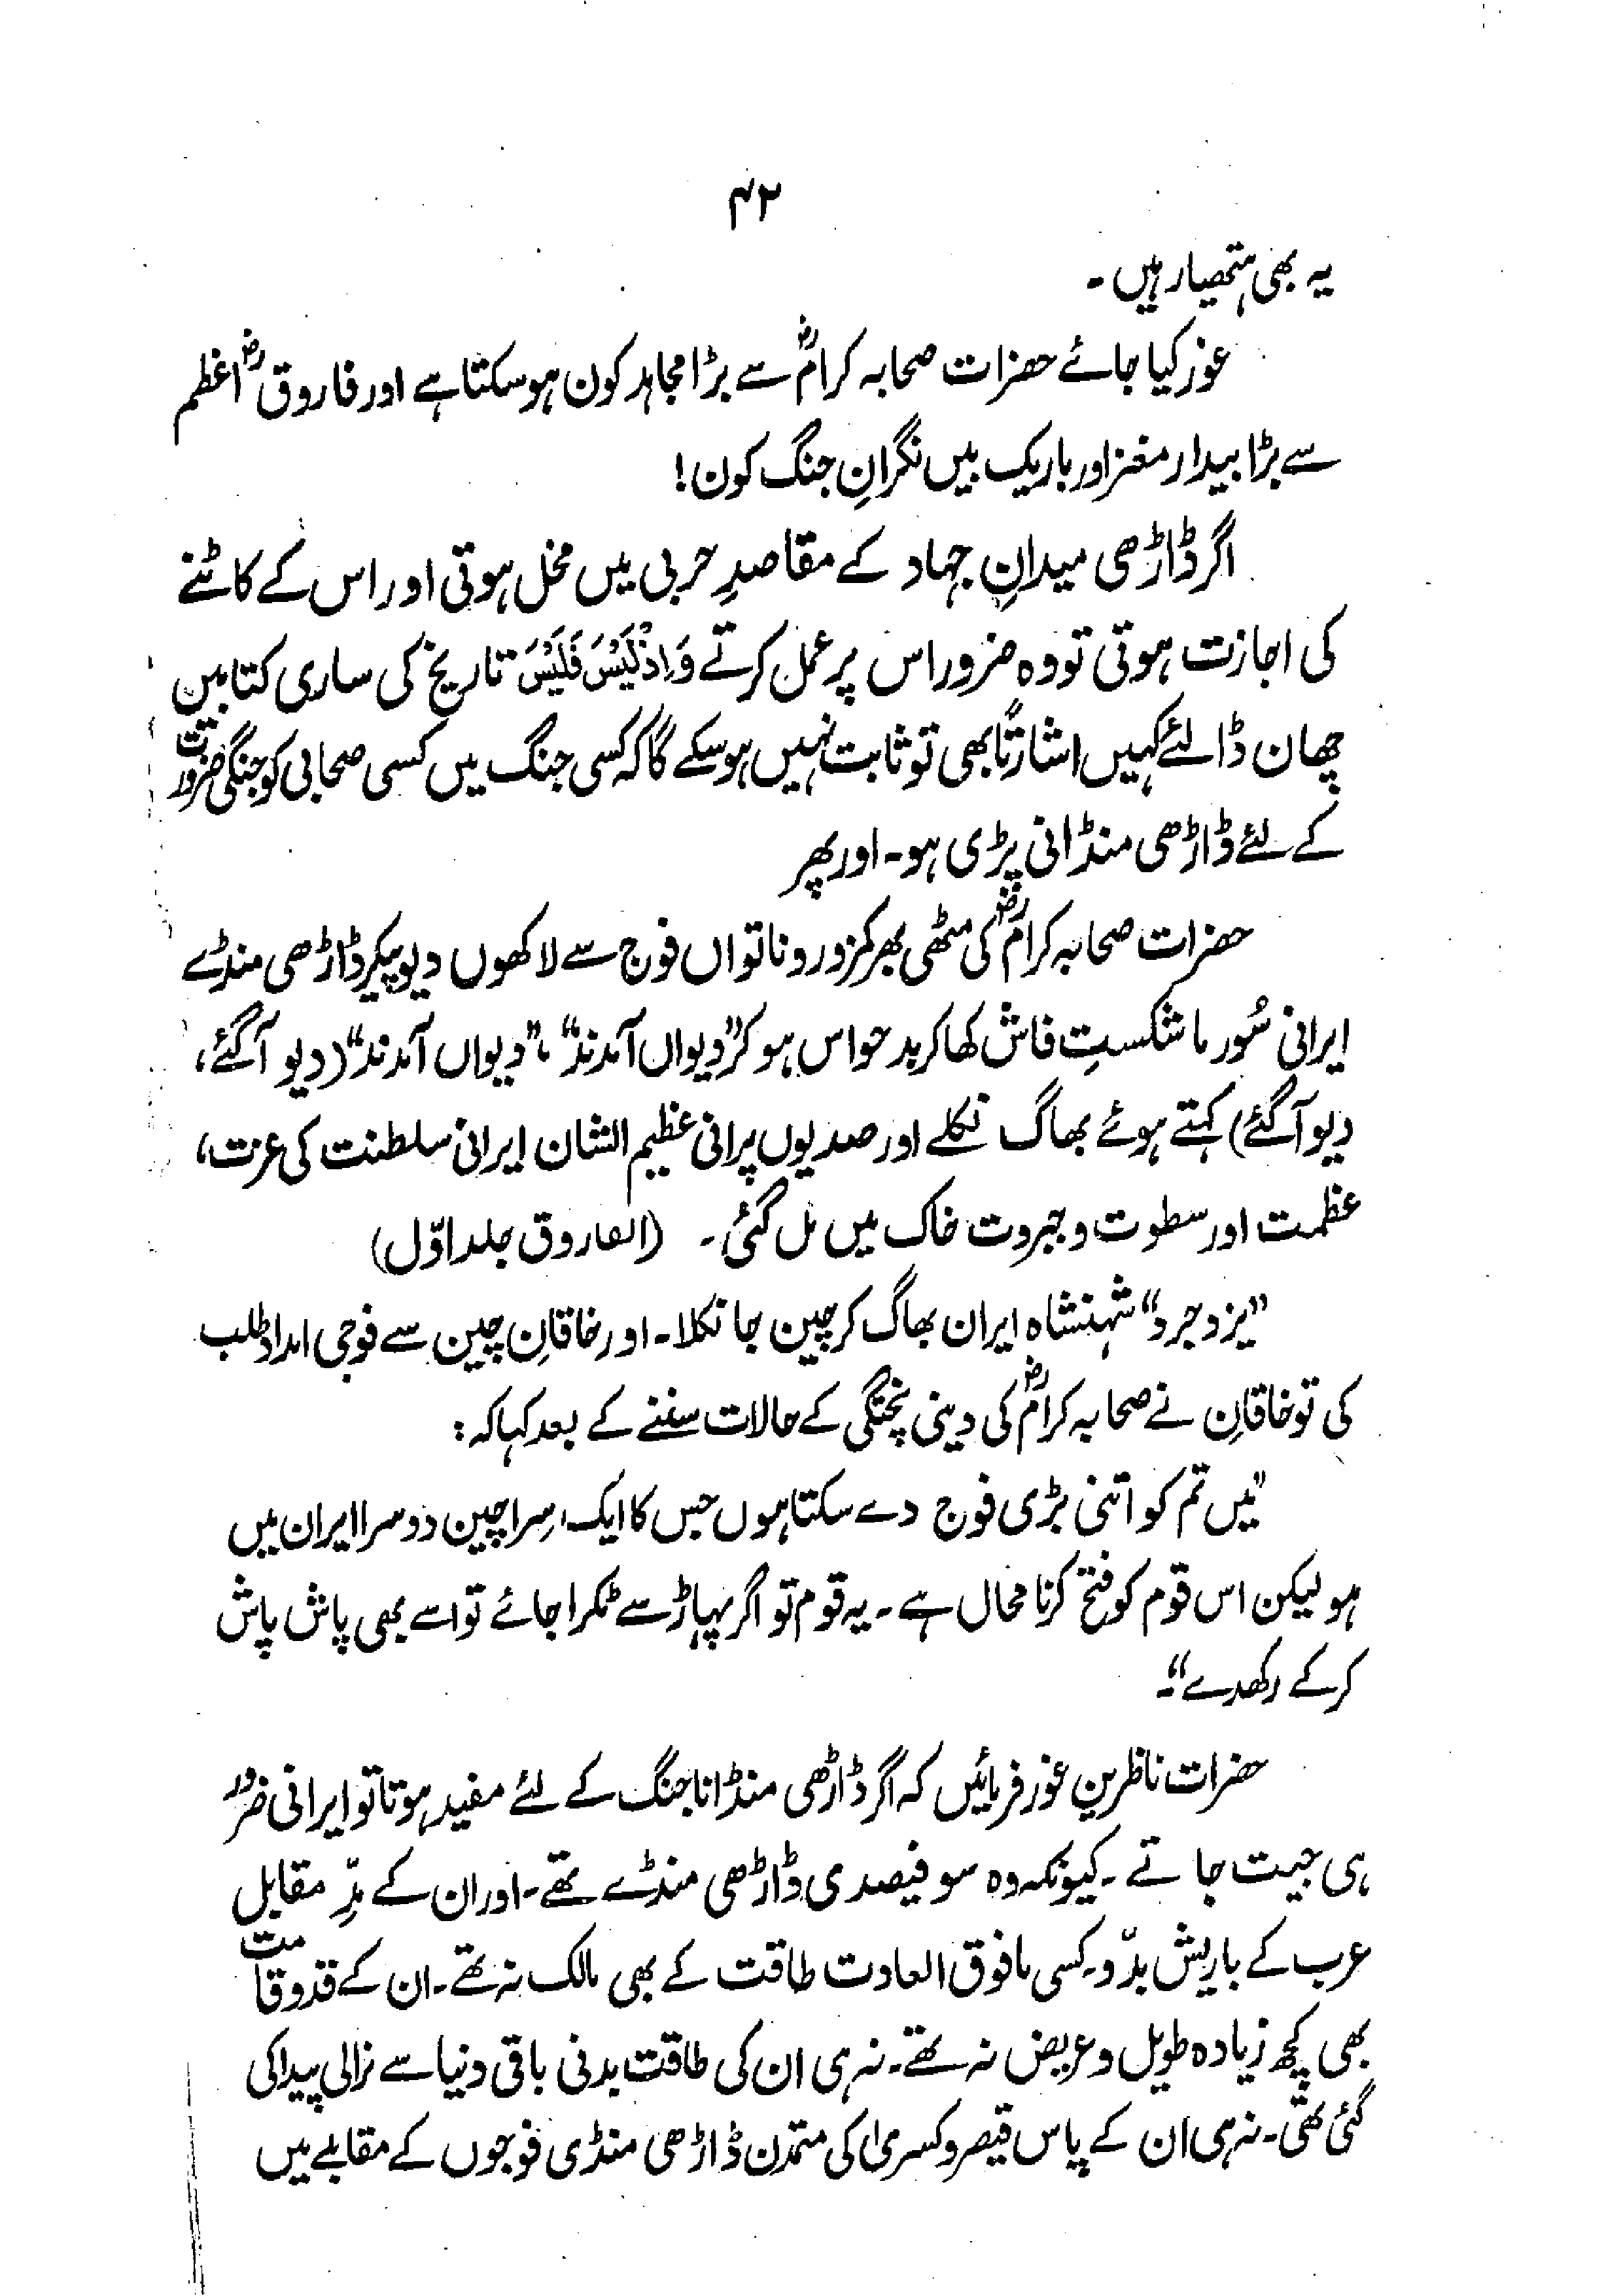 ۴۲
یہ بھی ہتھیار ہیں۔
غور کیا جائے حضرات صحابہ کرامؓ سے بڑا مجاہد کون ہوسکتا ہے اور فاروقؓ اعظم
سے بڑا بیدار مغز اور باریک بیں نگرانِ جنگ کون!
اگر ڈاڑھی میدانِ جہاد کے مقاصدِ حربی میں مخل ہوتی اور اس کے کاٹنے
کی اجازت ہوتی تو وہ ضرور اس پر عمل کرتے وَاِذْلَیْسَ فَلَیْسَ تاریخ کی ساری کتابیں
چھان ڈالئے کہیں اشارتاً بھی تو ثابت نہیں ہوسکے گا کہ کسی جنگ میں کسی صحابی کو جنگی ضرورت
کے لئے ڈاڑھی منڈانی پڑی ہو۔ اور پھر
حضرات صحابہ کرامؓ کی مٹھی بھر کمزور و ناتواں فوج سے لاکھوں دیوپیکر ڈاڑھی منڈے
ایرانی سُورما شکستِ فاش کھا کر بدحواس ہو کر ”دیواں آمدند“ ، ”دیواں آمدند“ (دیو آگئے،
دیو آگئے) کہتے ہوئے بھاگ نکلے اور صدیوں پرانی عظیم الشان ایرانی سلطنت کی عزت،
عظمت اور سطوت و جبروت خاک میں مل گئی۔ (الفاروق جلد اوّل)
”یزدجرد“ شہنشاہ ایران بھاگ کر چین جا نکلا۔ اور خاقانِ چین سے فوجی امداد طلب
کی تو خاقانِ نے صحابہ کرامؓ کی دینی پختگی کے حالات سننے کے بعد کہا کہ :
”میں تم کو اتنی بڑی فوج دے سکتا ہوں جس کا ایک سِرا چین دوسرا ایران میں
ہو لیکن اس قوم کو فتح کرنا محال ہے۔ یہ قوم تو اگر پہاڑ سے ٹکرا جائے تو اسے بھی پاش پاش
کرکے رکھدے“۔
حضرات ناظرین غور فرمائیں کہ اگر ڈاڑھی منڈانا جنگ کے لئے مفید ہوتا تو ایرانی ضرور
ہی جیت جاتے۔ کیونکہ وہ سو فیصدی ڈاڑھی منڈے تھے۔ اور ان کے مدِّ مقابل
عرب کے باریش بدّو۔ کسی مافوق العادت طاقت کے بھی مالک نہ تھے۔ ان کے قدوقامت
بھی کچھ زیادہ طویل و عریض نہ تھے۔ نہ ہی ان کی طاقت بدنی باقی دنیا سے نرالی پیدا کی
گئی تھی۔ نہ ہی ان کے پاس قیصر و کسریٰ کی متمدن ڈاڑھی منڈی فوجوں کے مقابلے میں